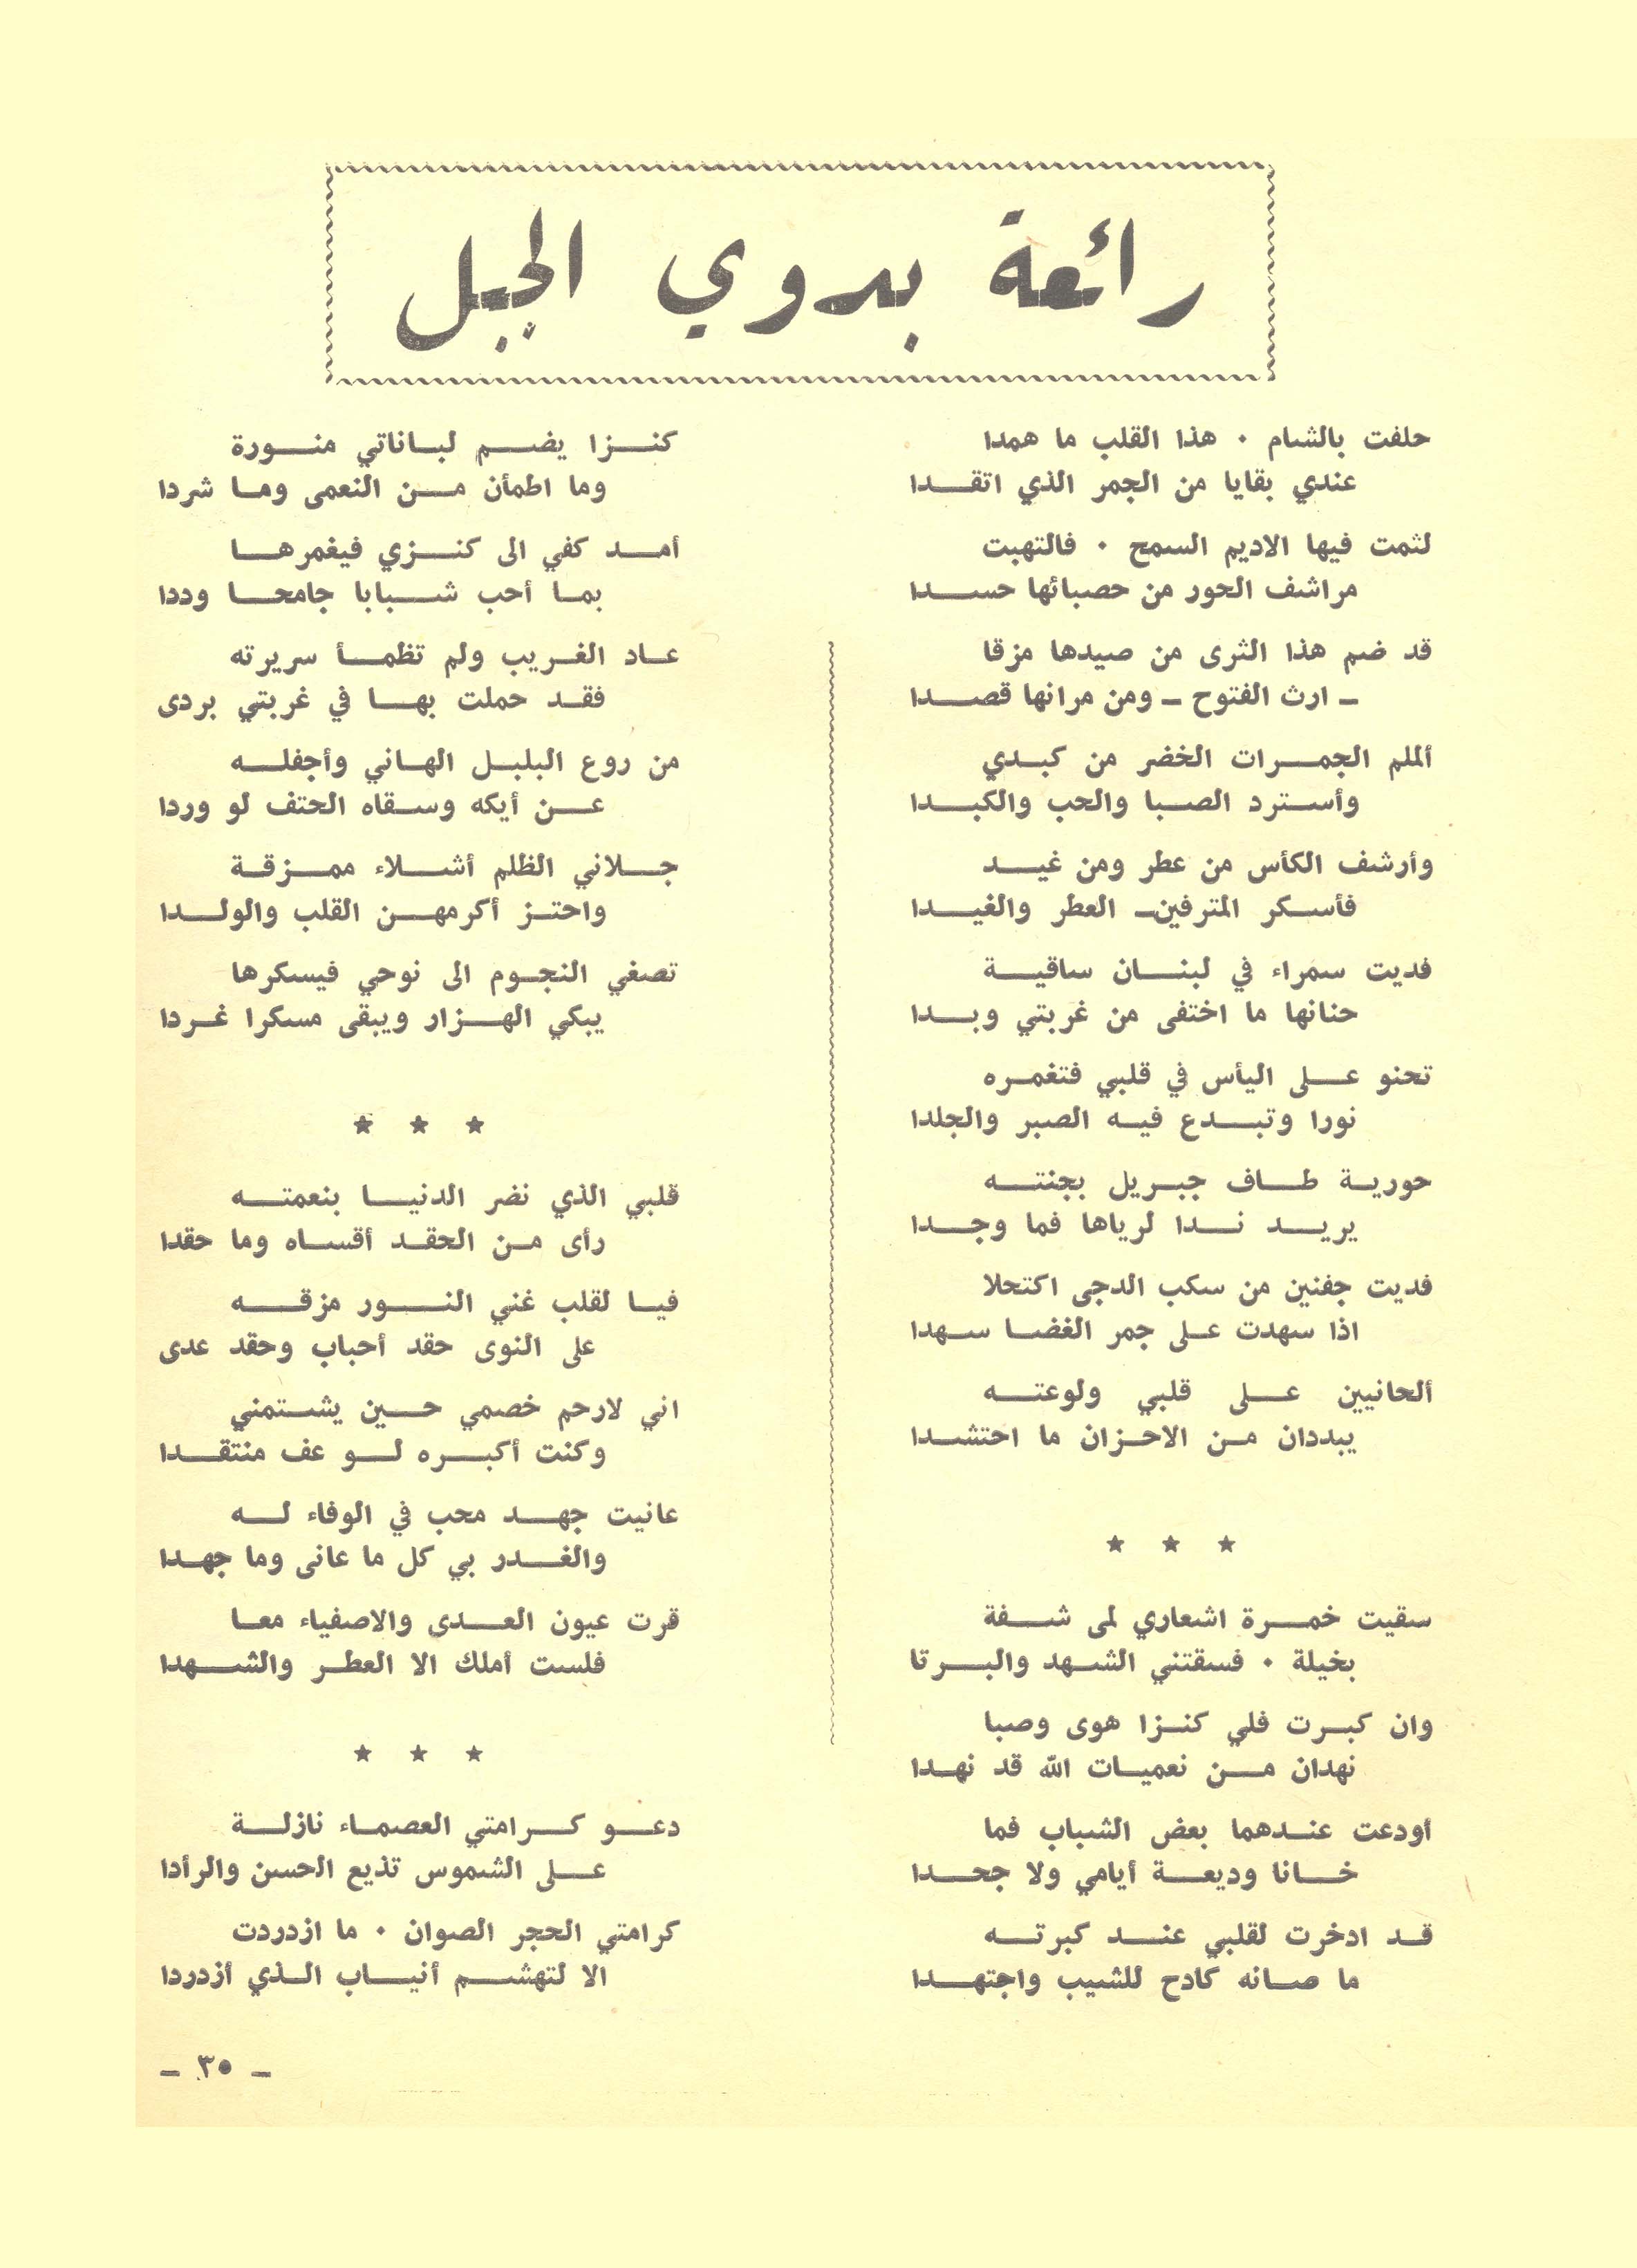 رائعة بدوي الجبل
حلفت بالشام ٠ هذا القلب ما همدا
عندي بقايا من الجمر الذي اتقدا
لثمت فيها الاديم السمح ٠ فالتهبت
مراشف الحور من حصبائها حسدا
قد ضم هذا الثرى من صيدها مزقا
ـ ارث الفتوح ـ ومن مرانها قصدا
ألملم الجمرات الخضر من كبدي
وأسترد الصبا والحب والكبدا
وأرشف الكأس من عطر ومن غيد
فأسكر المترفين ـ العطر والغيدا
فديت سمراء في لبنان ساقية
حنانها ما اختفى من غربتي وبدا
تحنو على اليأس في قلبي فتغمره
نورا وتبدع فيه الصبر والجلدا
حورية طاف جبريل بجنته
يريد ندا لرياها فما وجدا
فديت جفنين من سكب الدجى اكتحلا
اذا سهدت على جمر الغضا سهدا
ألحانيين على قلبي ولوعته
يبددان من الاحزان ما احتشدا
* * *
سقيت خمرة اشعاري لمى شفة
بخيلة ٠ فسقتني الشهد والبرتا
وان كبرت فلي كنزا هوى وصبا
نهدان من نعميات الله قد نهدا
أودعت عندهما بعض الشباب فما
خانا وديعة أيامي ولا جحدا
قد ادخرت لقلبي عند كبرته
ما صانه كادح للشيب واجتهدا
كنزا يضم لباناتي منورة
وما اطمأن من النعمى وما شردا
أمد كفي الى كنزي فيغمرها
بما أحب شبابا جامحا وددا
عاد الغريب ولم تظمأ سريرته
فقد حملت بها في غربتي بردى
من روع البلبل الهاني وأجفله
عن أيكه وسقاه الحتف لو وردا
جلاني الظلم أشلاء ممزقة
واحتز أكرمهن القلب والولدا
تصغي النجوم الى نوحي فيسكرها
يبكي الهزار ويبقى مسكرا غردا
* * *
قلبي الذي نضر الدنيا بنعمته
رأى من الحقد أقساه وما حقدا
فيا لقلب غني النور مزقه
على النوى حقد أحباب وحقد عدى
اني لارحم خصمي حين يشتمني
وكنت أكبره لو عف منتقدا
عانيت جهد محب في الوفاء له
والغدر بي كل ما عانى وما جهدا
قرت عيون العدى والاصفياء معا
فلست أملك الا العطر والشهدا
* * *
دعو كرامتي العصماء نازلة
على الشموس تذيع الحسن والرأدا
كرامتي الحجر الصوان ٠ ما ازدردت
الا لتهشم أنياب الذي أزدردا
ـ ٣٥ ـ